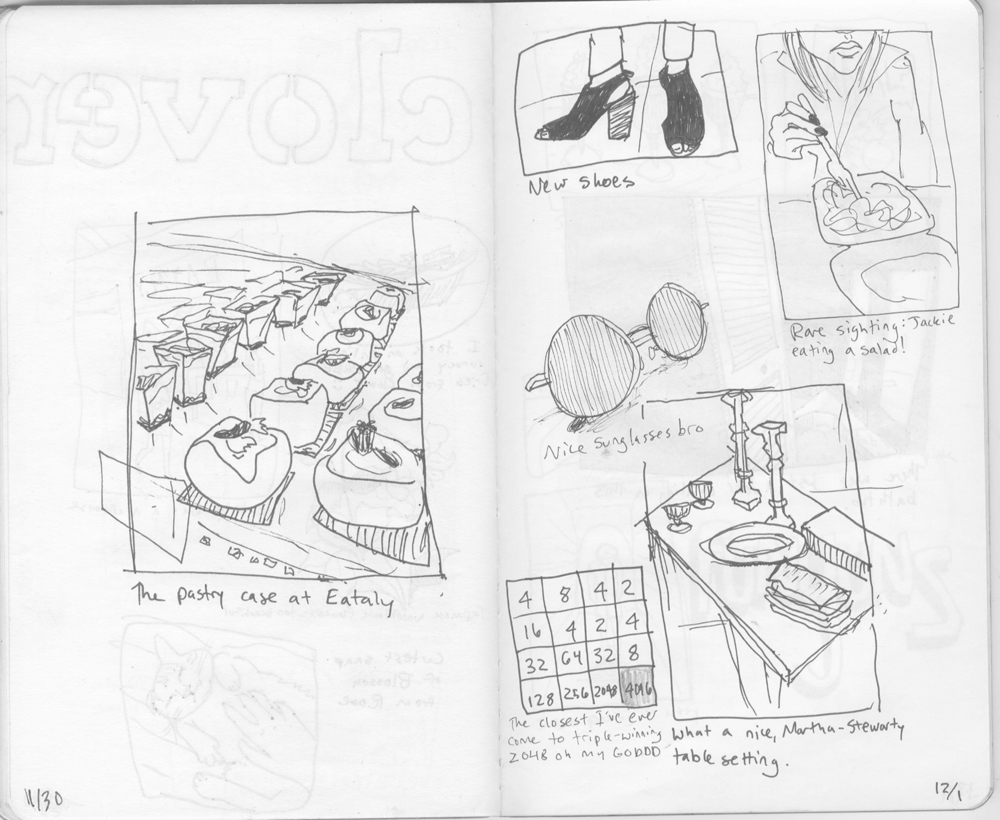 The pastry case at Eataly
11/30
New shoes
Rare sighting: Jackie
eating a salad!
Nice sunglasses bro
4 8 4 2
16 4 2 4
32 64 32 8
128 256 2048 4096
The closest I've ever
come to triple-winning
2048 oh my GODDD
What a nice, Martha-Stewarty
table setting.
12/1
clover
Cutest snap
of Blossom